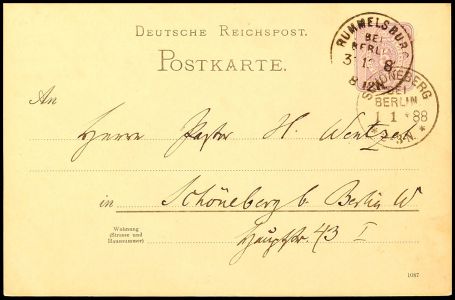 DEUTSCHE REICHSPOST.
POSTKARTE.
RUMMELSBURG
BEI
BERL
8
8-12N.
SCHÖNEBERG
BEI
BERLIN
1 1 88
An
Herrn Pastor H.
in Schöneberg b. Berlin W
Wohnung
(Strasse und
Hausnummer)
Hauptstr. 43 I
1087